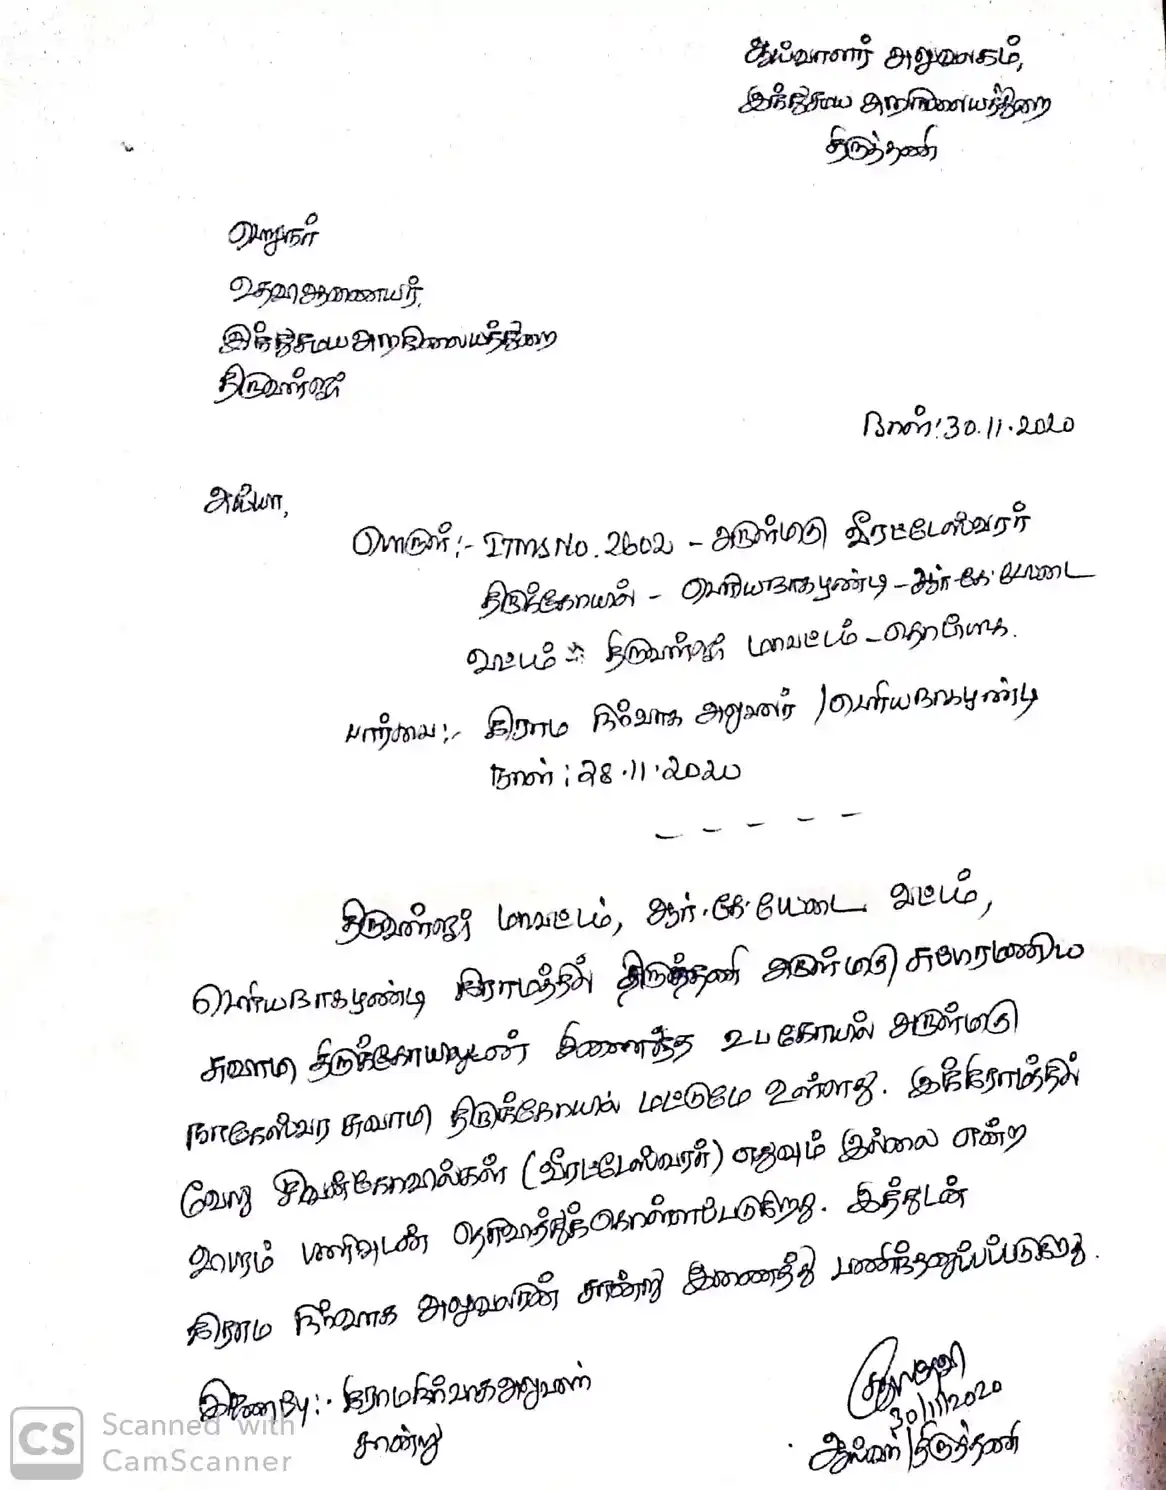 ஆய்வாளர் அலுவலகம்,
இந்துசமய அறநிலையத்துறை
திருத்தணி
பெறுநர்
உதவிஆணையர்,
இந்துசமய அறநிலையத்துறை
திருவள்ளூர்
நாள்: 30.11.2020
அய்யா,
பொருள்:- ITMS No. 2602 - அருள்மிகு வீரட்டேஸ்வரர்
திருக்கோயில் - பெரியநாகபூண்டி - ஆர்.கே. பேட்டை
வட்டம் திருவள்ளூர் மாவட்டம் -
பார்வை:- கிராம நிர்வாக அலுவலர் / பெரியநாகபூண்டி
நாள்: 28.11.2020
- - - - -
திருவள்ளூர் மாவட்டம், ஆர்.கே.பேட்டை வட்டம்,
பெரியநாகபூண்டி கிராமத்தில் திருத்தணி அருள்மிகு சுப்ரமணிய
சுவாமி திருக்கோயிலுடன் இணைந்த உபகோயில் அருள்மிகு
நாகேஸ்வர சுவாமி திருக்கோயில் மட்டுமே உள்ளது. இக்கிராமத்தில்
வேறு சிவன்கோவில்கள் (வீரட்டேஸ்வரர்) எதுவும் இல்லை என்ற
விபரம் பணிவுடன் தெரிவித்துக்கொள்ளப்படுகிறது. இத்துடன்
கிராம நிர்வாக அலுவலரின் சான்று இணைத்து பணிந்தனுப்பப்படுகிறது.
இணைப்பு:- கிராமநிர்வாகஅலுவலர்
சான்று
30/11/2020
ஆய்வர் / திருத்தணி
CS Scanned with
CamScanner